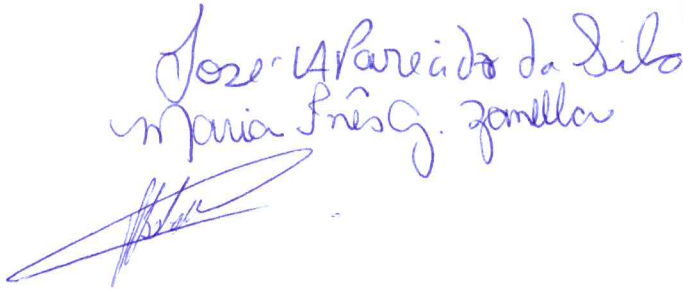 José Aparecido da Silva
Maria Inês G. Zanella